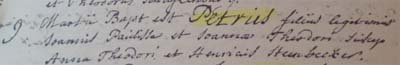 et Theodorus
9 Martii Bapt est Petrus filius legitimus
Joannis Paulisse et Joannae Theodori Susc
Anna Theodori et Henricus Steenbecker.